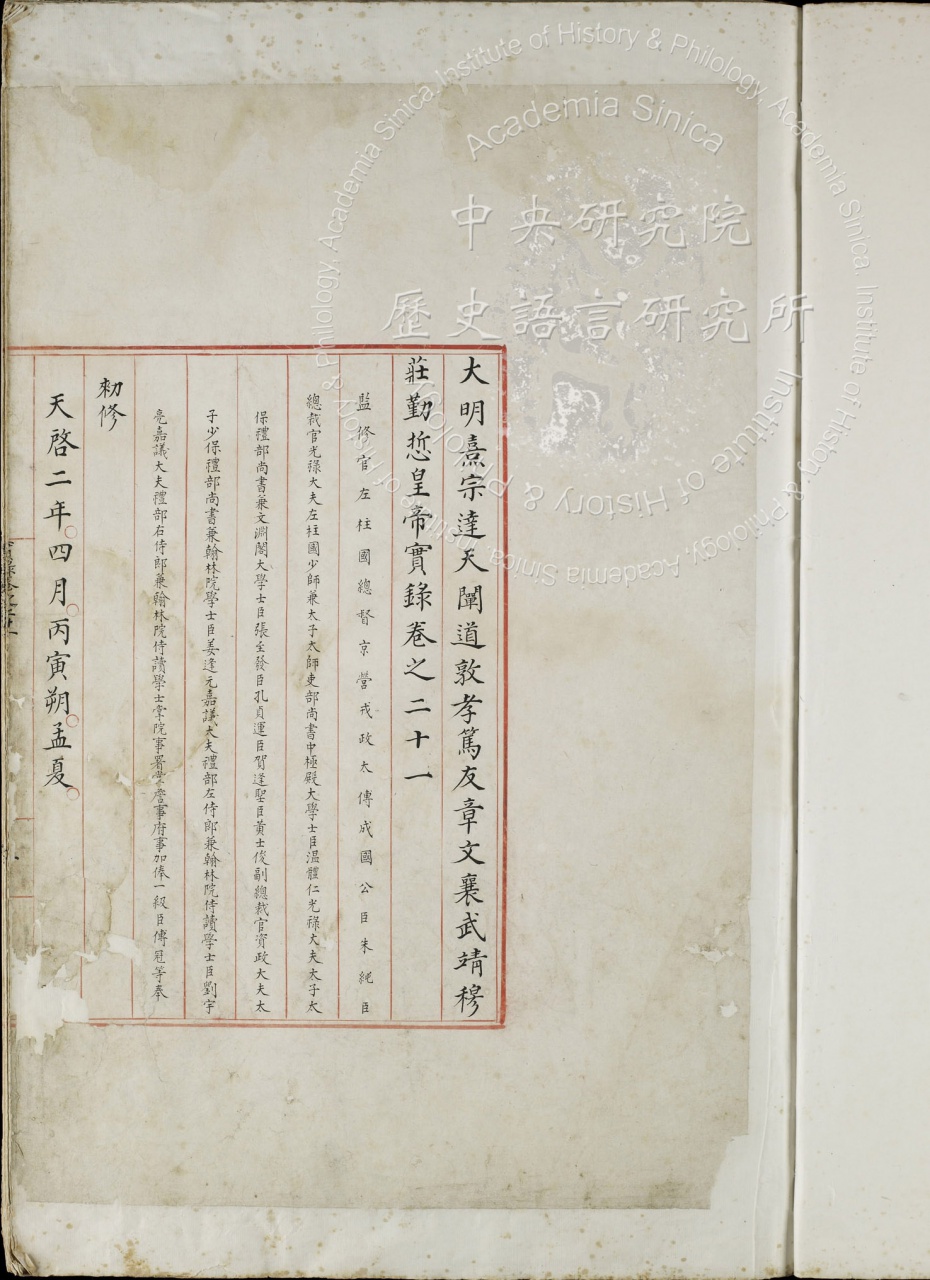 大明熹宗達天闡道敦孝篤友章文襄武靖穆
莊勤悊皇帝實錄卷之二十一
監修官左柱國總督京營戎政太傅成國公臣朱純臣
總裁官光祿大夫左柱國少師兼太子太師吏部尚書中極殿大學士臣温體仁光祿大夫太子太
保禮部尚書兼文淵閣大學士臣張至發臣孔貞運臣賀逢聖臣黃士俊副總裁官資政大夫太
子少保禮部尚書兼翰林院學士臣姜逢元嘉議大夫禮部左侍郎兼翰林院侍讀學士臣劉宇
亮嘉議大夫禮部右侍郎兼翰林院侍讀學士掌院事署詹事府事加俸一級臣傅冠等奉
勑修
天啓二年四月丙寅朔孟夏
中央研究院
歷史語言研究所
Academia Sinica
Institute of History & Philology, Academia Sinica